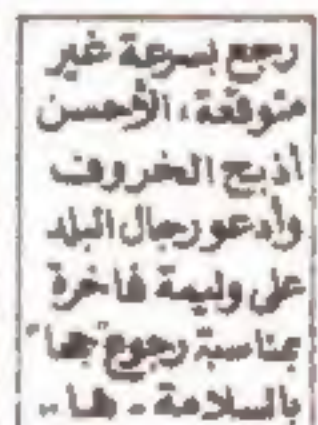 رجع بسرعة غير
متوقعة، الأحسن
أذبح الخروف
وأدعو رجال البلد
على وليمة فاخرة
بمناسبة رجوع "جحا"
بالسلامة .. هـا ..